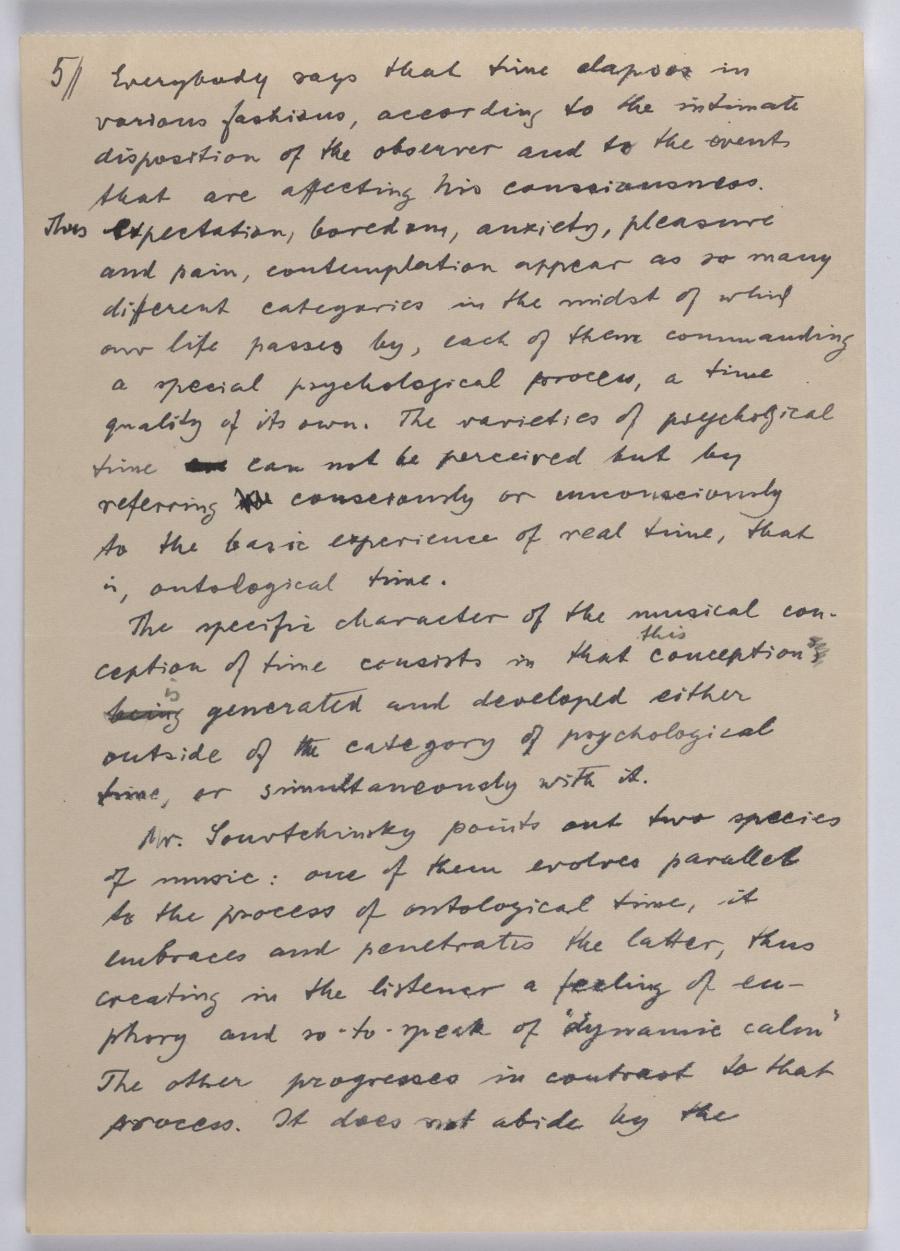 5// Everybody says that time elapses in
various fashions, according to the intimate
disposition of the observer and to the events
that are affecting his consciousness.
Thus expectation, boredom, anxiety, pleasure
and pain, contemplation appear as so many
different categories in the midst of which
our life passes by, each of them commanding
a special psychological process, a time
quality of its own. The varieties of psycholgical
time can not be perceived but by
referring consciously or unconsciously
to the basic experience of real time, that
is, ontological time.
The specific character of the musical con-
ception of time consists in that this conception
being is generated and developed either
outside of the category of psychological
time, or simultaneously with it.
Mr. Souvtchinsky points out two species
of music: one of them evolves parallel
to the process of ontological time, it
embraces and penetrates the latter, thus
creating in the listener a feeling of eu-
phory and so-to-speak of "dynamic calm"
The other progresses in contrast to that
process. It does not abide by the